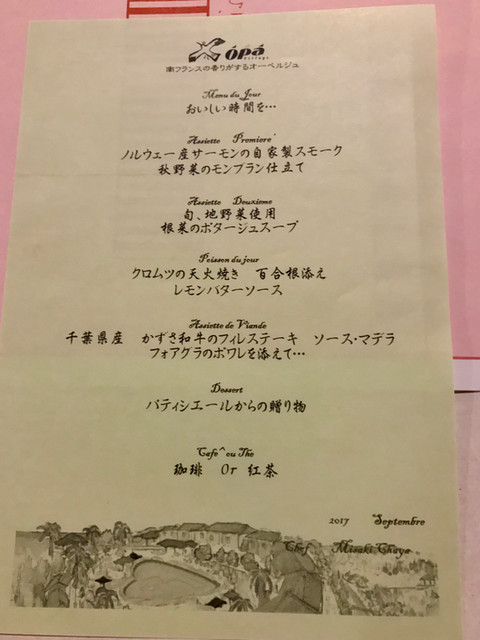 ópá
village
南フランスの香りがするオーベルジュ
Menu du Jour
おいしい時間を…
Assiette Premiere'
ノルウェー産サーモンの自家製スモーク
秋野菜のモンブラン仕立て
Assiette Deuxieme
旬、地野菜使用
根菜のポタージュスープ
Poisson du jour
クロムツの天火焼き 百合根添え
レモンバターソース
Assiette de Viande
千葉県産 かずさ和牛のフィレステーキ ソース・マデラ
フォアグラのポワレを添えて…
Dessert
パティシエールからの贈り物
Cafe^ ou The
珈琲 Or 紅茶
2017 Septembre
Chef Misaki Chaya